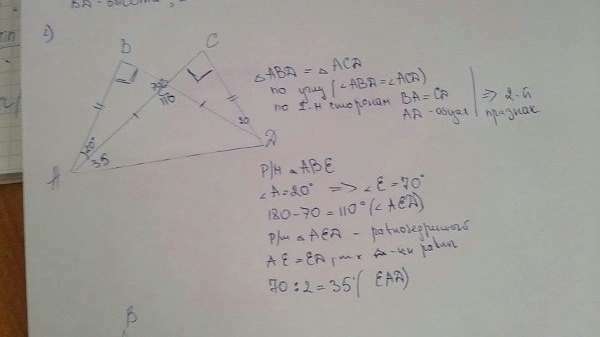 2)
B
C
110
20°
35
20
A
D
△ABD = △ACD
по углу (∠ABD=∠ACD)
по 2-м сторонам BA=CD
AD-общая
=> 2-й
признак
Р/м △ABE
∠A=20° => ∠E=70°
180-70=110° (∠AED)
Р/м △AED - равнобедренный
AE=ED, т.к △-ки равны
70:2=35° ( EAD)
B